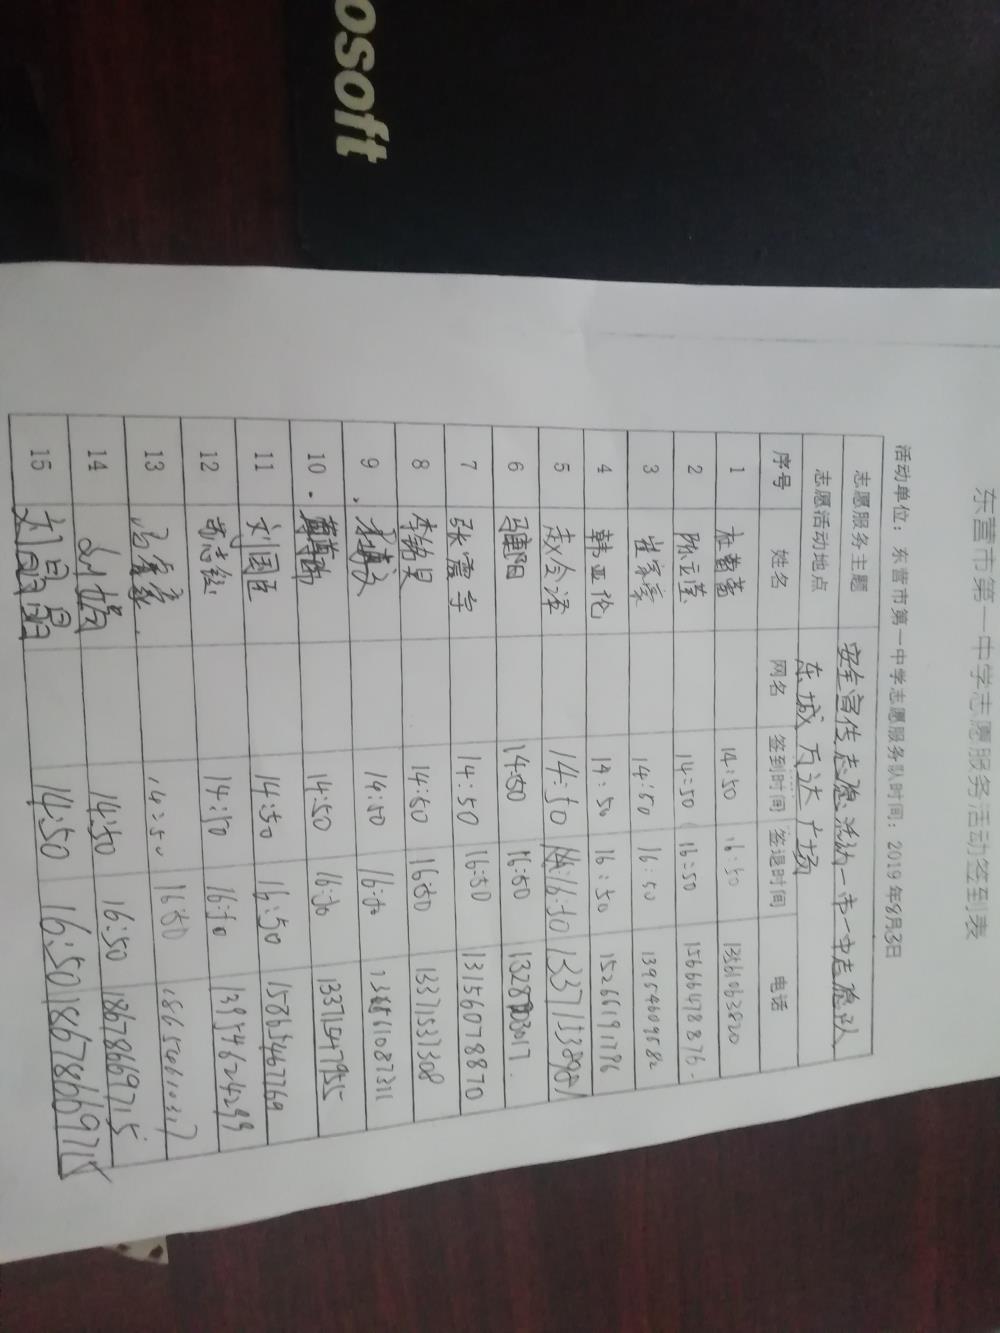 osoft
东营市第一中学志愿服务活动签到表
活动单位：东营市第一中学志愿服务队时间：2019年8月3日
志愿服务主题 安全宣传志愿活动—市一中志愿队
志愿活动地点 东城万达广场
序号 姓名 网名 签到时间 签退时间 电话
1 14:50 16:50 13561063820
2 陈立莹 14:50 16:50 15666478876
3 崔家寨 14:50 16:50 13954609582
4 韩亚伦 14:50 16:50 15266191786
5 赵令泽 14:50 16:50
6 马阳 14:50 16:50
7 张震宇 14:50 16:50 13156078870
8 李铭昊 14:50 16:50 13371537308
9 14:50 16:50
10 14:50 16:50 13371547955
11 刘国臣 14:50 16:50 15865467769
12 14:50 16:50 13954624299
13 14:50 16:50 18654660317
14 14:50 16:50 18678669715
15 14:50 16:50 18678669715